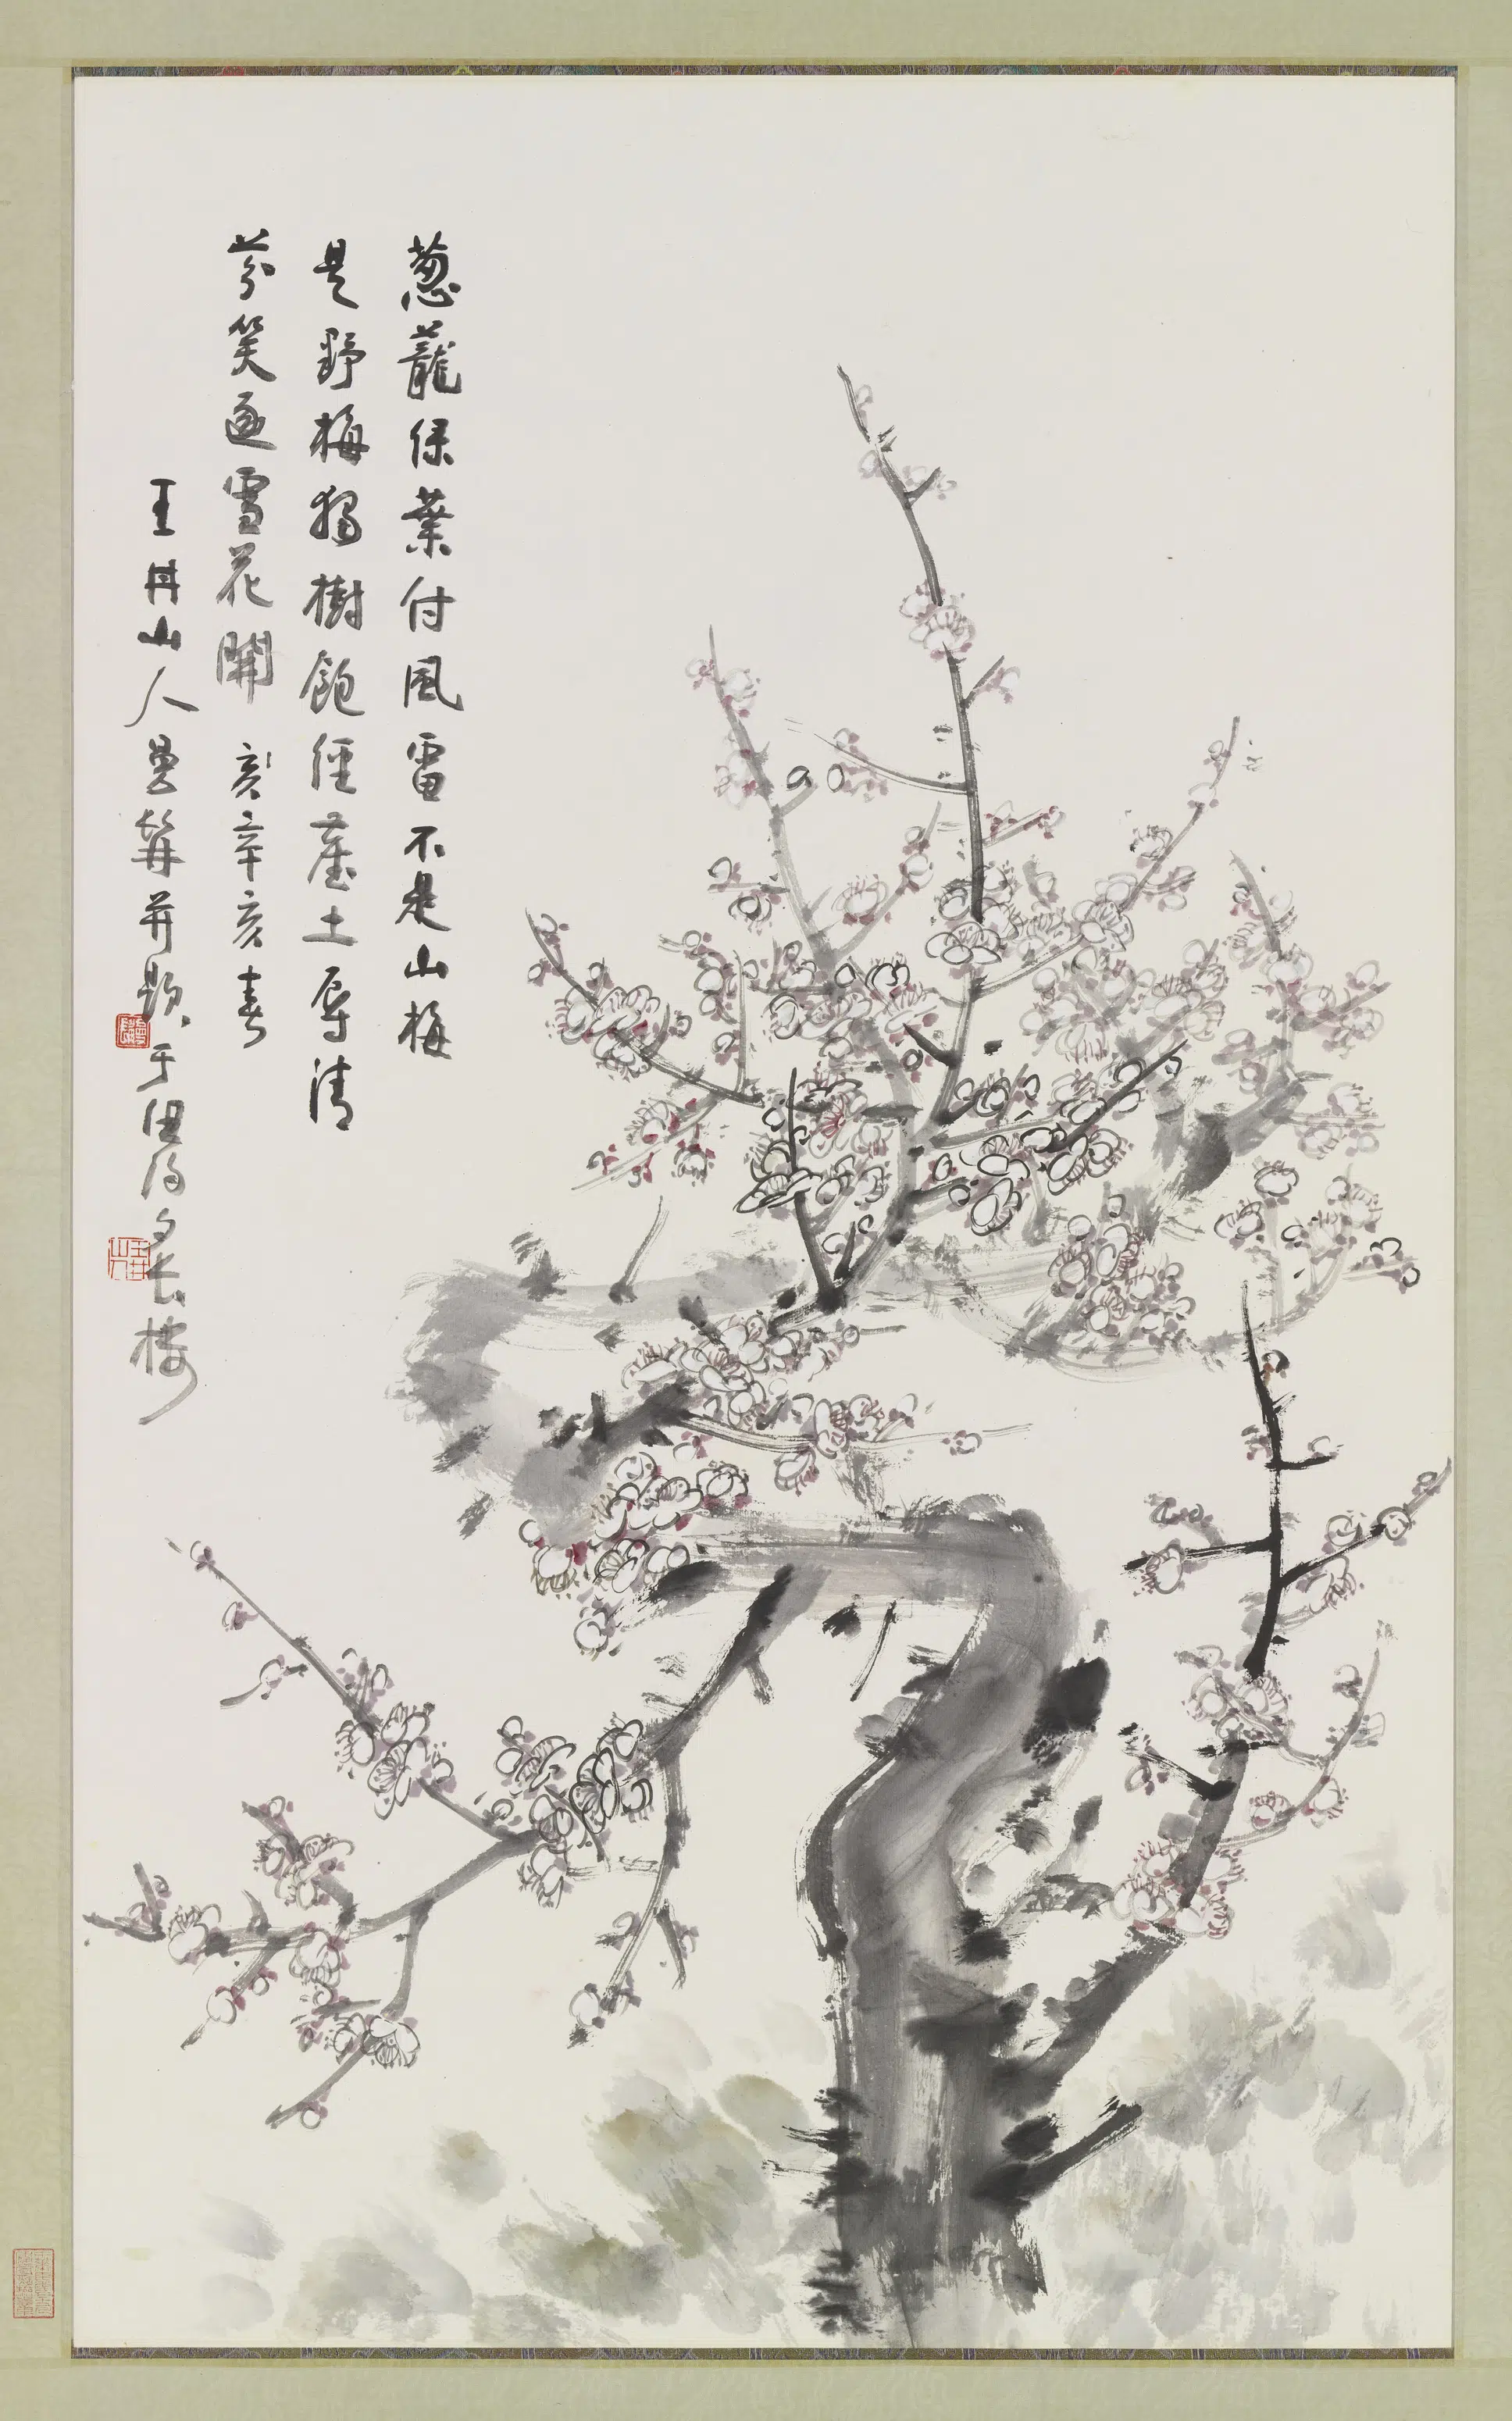 蔥蘢綠葉付風雷不是山梅
是野梅獨樹飽經塵土辱清
芬笑逐雪花開 辛亥春
王丹山人曼髯并題于 樓